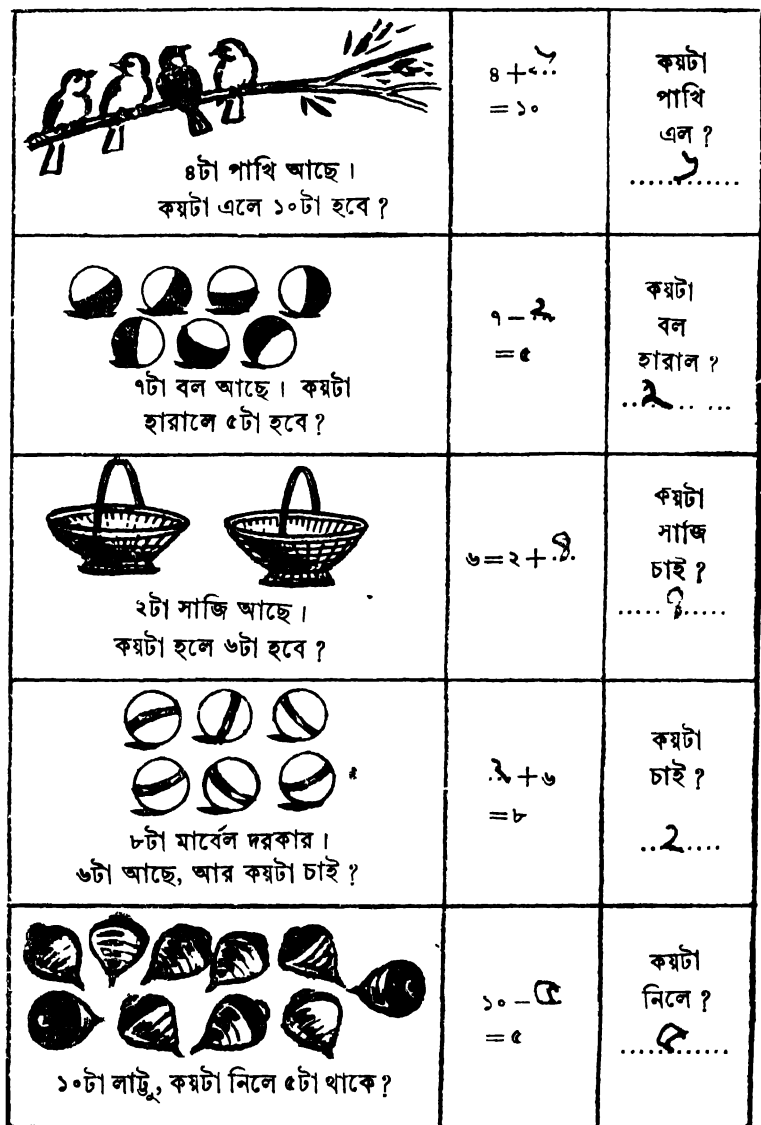 ৪টা পাখি আছে।
কয়টা এলে ১০টা হবে?
৪+৬
=১০
কয়টা
পাখি
এল?
৬
৭টা বল আছে। কয়টা
হারালে ৫টা হবে?
৭–২
=৫
কয়টা
বল
হারাল?
২
২টা সাজি আছে।
কয়টা হলে ৬টা হবে?
৬=২+৪
কয়টা
সাজি
চাই?
৪
৮টা মার্বেল দরকার।
৬টা আছে, আর কয়টা চাই?
২+৬
=৮
কয়টা
চাই?
২
১০টা লাট্টু, কয়টা নিলে ৫টা থাকে?
১০–৫
=৫
কয়টা
নিলে?
৫